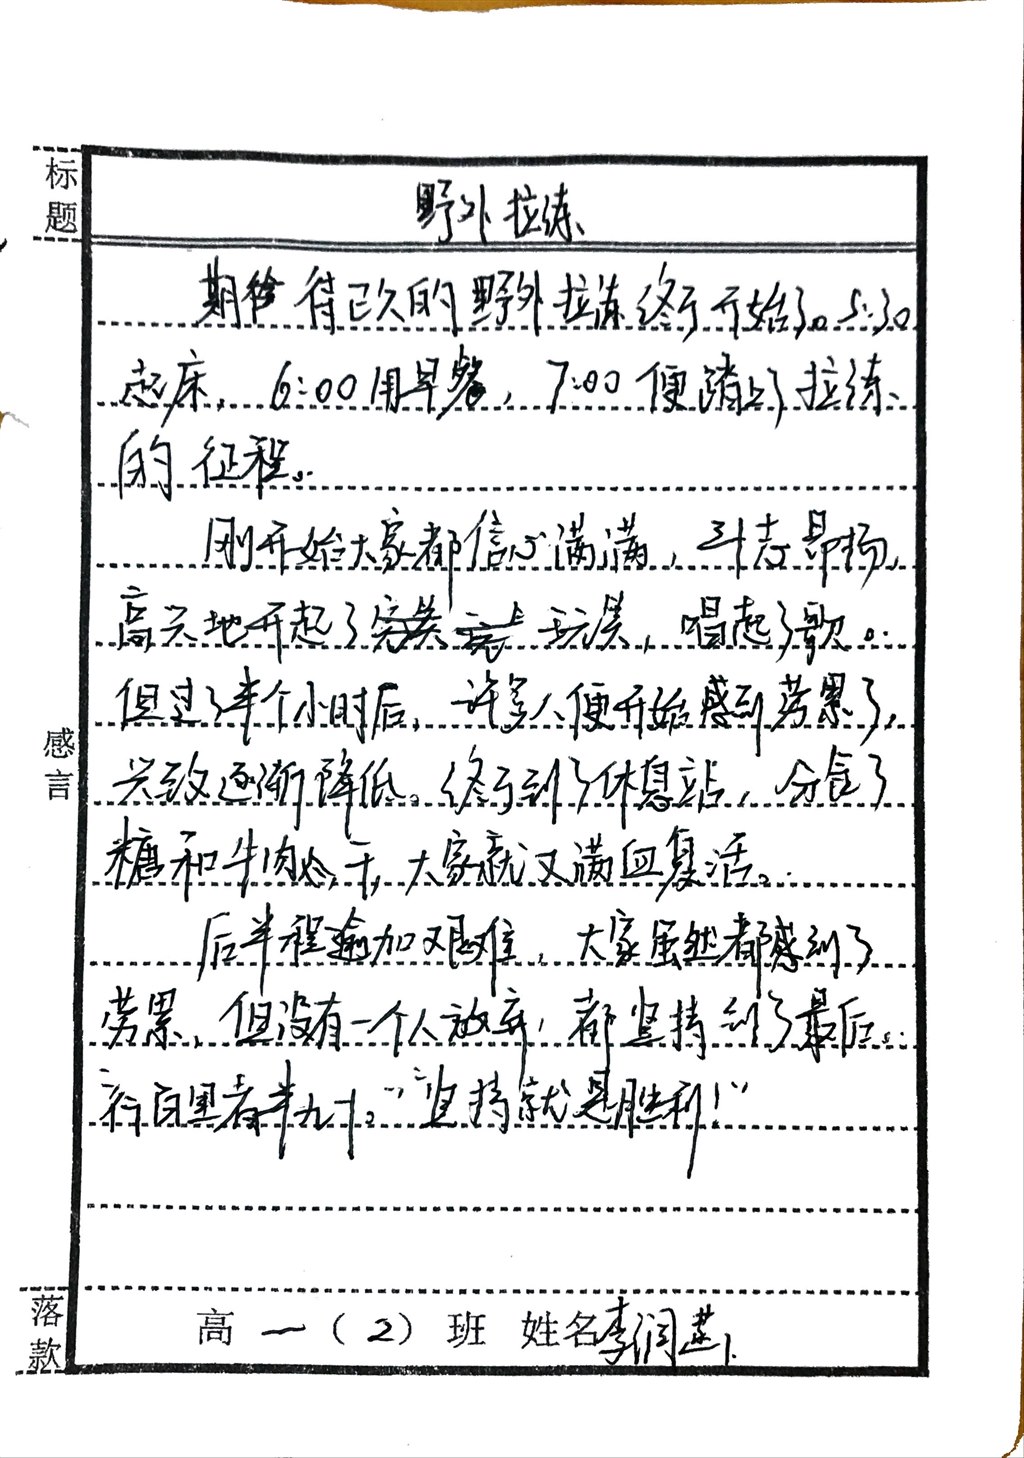 标题
野外拉练
期待已久的野外拉练终于开始了。5:30
起床，6:00用早餐，7:00便踏上了拉练
的征程。
刚开始大家都信心满满，斗志昂扬，
高兴地开起了玩笑，唱起了歌。
但过了半个小时后，许多人便开始感到劳累了，
兴致逐渐降低。终于到了休息站，分食了
糖和牛肉干，大家就又满血复活。
后半程愈加艰难，大家虽然都感到了
劳累，但没有一个人放弃，都坚持到了最后。
行百里者半九十。“坚持就是胜利！”
感言
落款
高一（2）班 姓名李润